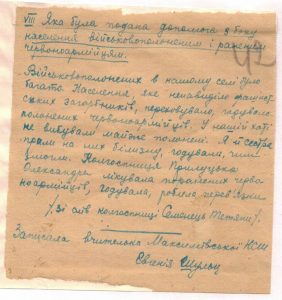 VIII Яка була подана допомога з боку
населення військовополоненим і раненим
червоноармійцям.
Військовополонених в нашому селі було
багато. Населення, яке ненавиділо фашист-
ських загарбників, переховувало, годувало
полонених червоноармійців. У нашій хаті
не вибували майже полонені. Я й сестра
прали на них білизну, годували, чим
змогли. Колгоспниця Прилуцька
Олександра лікувала поранених черво-
ноармійців, годувала, робила перев'язки
/зі слів колгоспниці Семенець Тетяни/.
Записала вчителька Максимівської
Євгенія